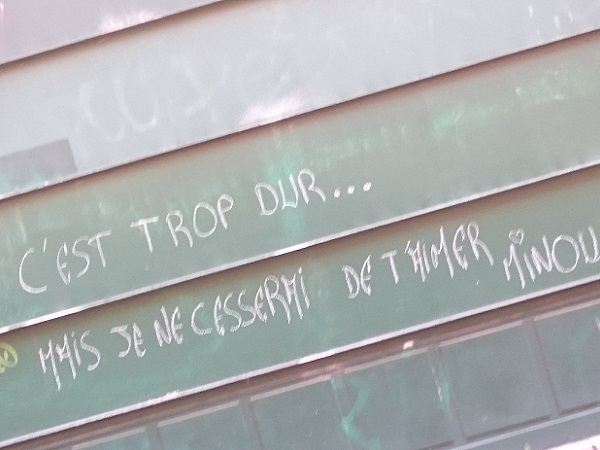 C'EST TROP DUR...
MAIS JE NE CESSERAI DE T'AIMER MINOU